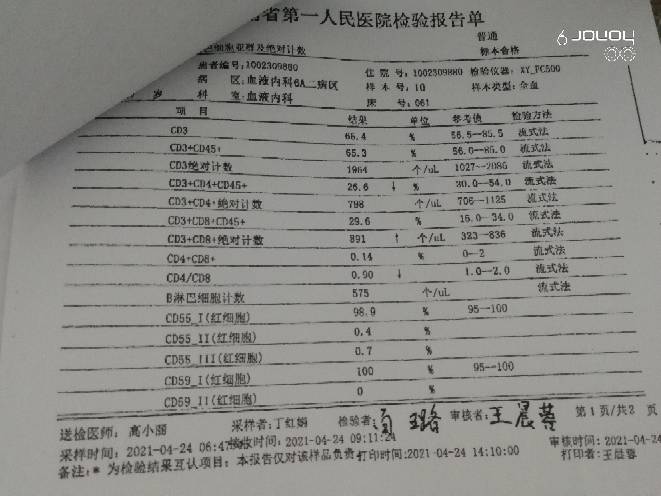 省第一人民医院检验报告单
普通
JOYOY
细胞亚群及绝对计数
标本合格
患者编号:1002309880 住院号:1002309880 检验仪器: XY_FC500
病 区:血液内科6A二病区 样本号:10 样本类型:全血
岁 科 室:血液内科 床 号:061
项 目 结果 单位 参考值 检验方法
CD3 66.4 % 56.5--85.5 流式法
CD3+CD45+ 65.3 % 56.0--85.0 流式法
CD3绝对计数 1964 个/uL 1027--2086 流式法
CD3+CD4+CD45+ 26.6 ↓ % 30.0--54.0 流式法
CD3+CD4+绝对计数 798 个/uL 706--1125 流式法
CD3+CD8+CD45+ 29.6 % 15.0--34.0 流式法
CD3+CD8+绝对计数 891 ↑ 个/uL 323--836 流式法
CD4+CD8+ 0.14 % 0--2 流式法
CD4/CD8 0.90 ↓ 1.0--2.0 流式法
B淋巴细胞计数 575 个/uL 流式法
CD55_I(红细胞) 98.9 % 95--100
CD55_II(红细胞) 0.4 %
CD55_III(红细胞) 0.7 %
CD59_I(红细胞) 100 % 95--100
CD59_II(红细胞) 0 %
送检医师: 高小丽 采样者:丁红娟 检验者: 璐 审核者:王晨蓉 第1页/共2 页
采样时间:2021-04-24 06:47 接收时间:2021-04-24 09:11:24 审核时间:2021-04-24
备注:* 为检验结果互认项目; 本报告仅对该样品负责 打印时间:2021-04-24 14:10:00 打印者:王晨蓉